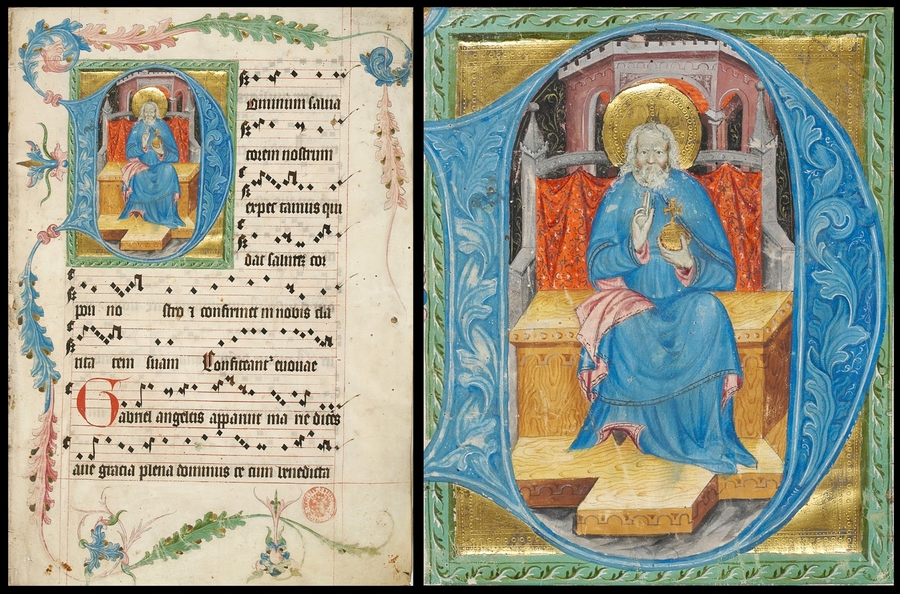 Dominum salua
torem nostrum
expectamus qui
dat salutē cor
pori no stro ⁊ confirmet in nobis cla
rita tem suam Confiteant' euouae
Gabriel angelus apparuit ma rie dicēs
aue gracia plena dominus te cum benedicta